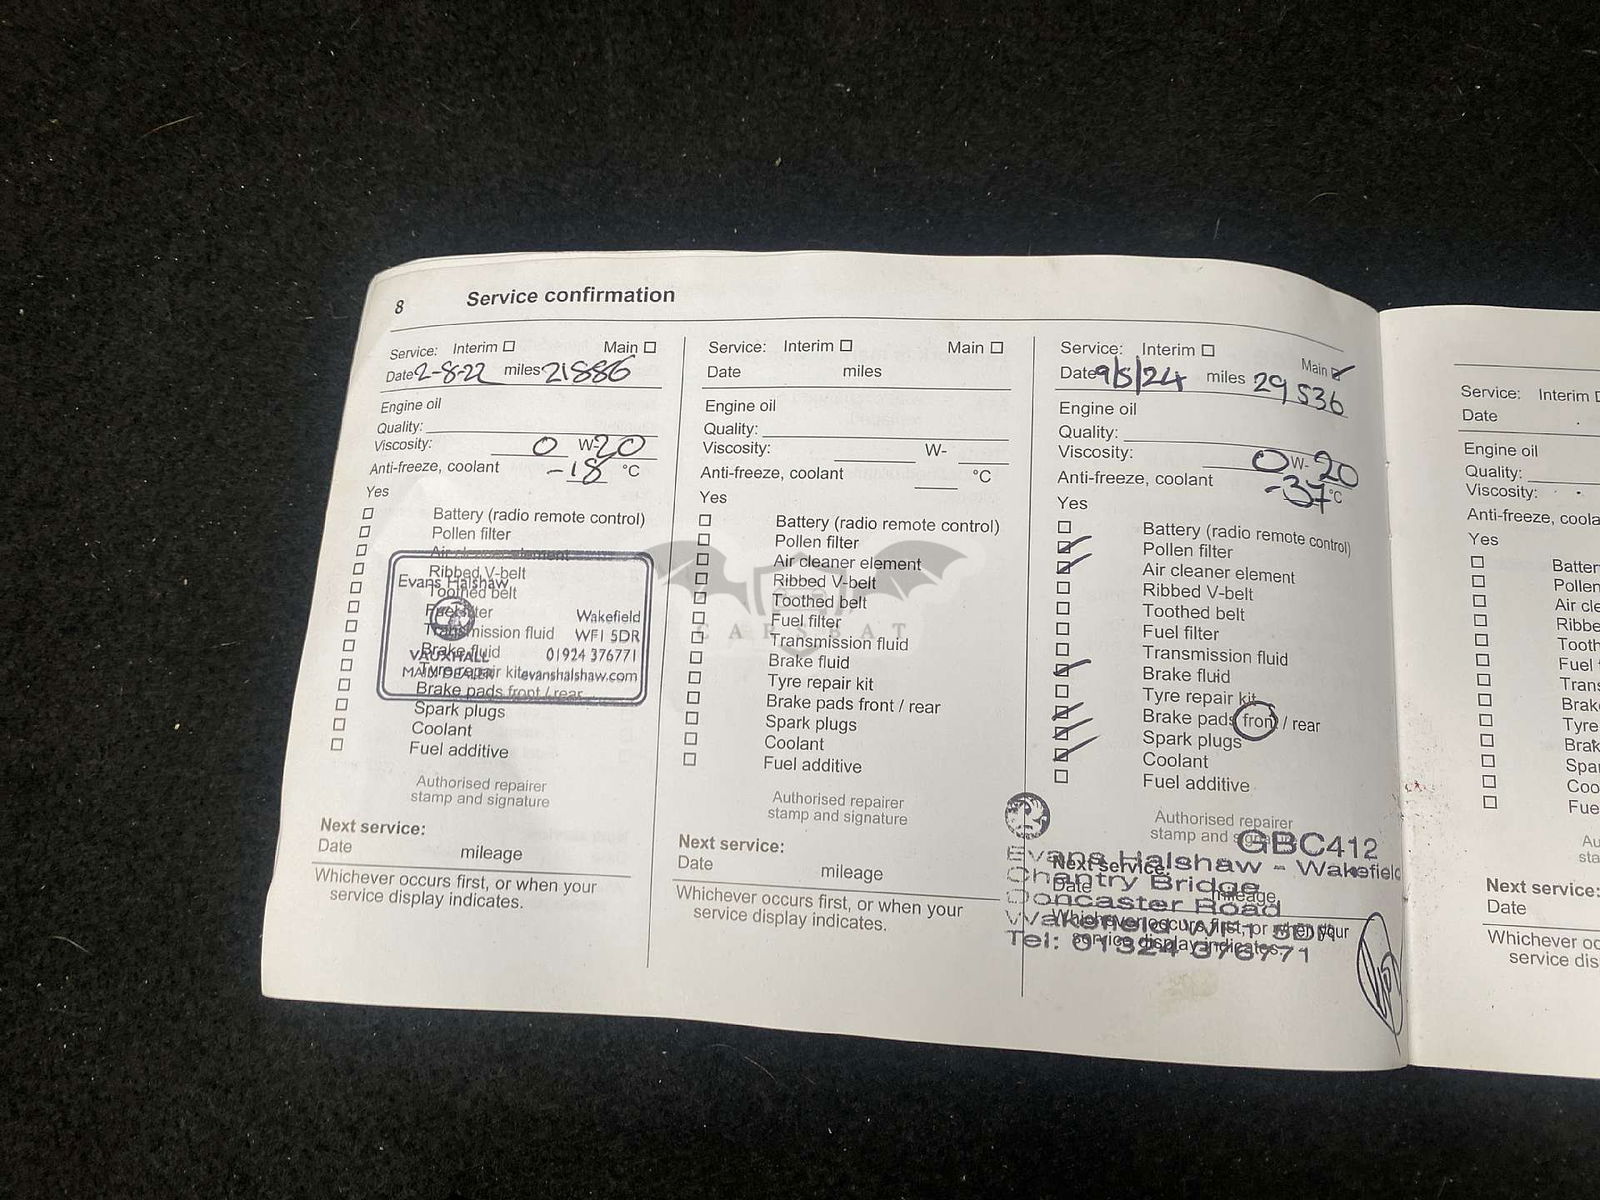 8 Service confirmation
Service: Interim Main
Date 2-8-22 miles 21886
Engine oil
Quality:
Viscosity: 0 W-20
Anti-freeze, coolant -18 °C
Yes
Battery (radio remote control)
Pollen filter
Air cleaner element
Ribbed V-belt
Toothed belt
Fuel filter
Transmission fluid
Brake fluid
Tyre repair kit
Brake pads front / rear
Spark plugs
Coolant
Fuel additive
Evans Halshaw
Wakefield
WF1 5DR
VAUXHALL 01924 376771
MAIN DEALER evanshalshaw.com
Authorised repairer
stamp and signature
Next service:
Date mileage
Whichever occurs first, or when your
service display indicates.
Service: Interim Main
Date miles
Engine oil
Quality:
Viscosity: W-
Anti-freeze, coolant °C
Yes
Battery (radio remote control)
Pollen filter
Air cleaner element
Ribbed V-belt
Toothed belt
Fuel filter
Transmission fluid
Brake fluid
Tyre repair kit
Brake pads front / rear
Spark plugs
Coolant
Fuel additive
CARSBAT
Authorised repairer
stamp and signature
Next service:
Date mileage
Whichever occurs first, or when your
service display indicates.
Service: Interim Main
Date 9/5/24 miles 29536
Engine oil
Quality:
Viscosity: 0 W-20
Anti-freeze, coolant -37 °C
Yes
Battery (radio remote control)
Pollen filter
Air cleaner element
Ribbed V-belt
Toothed belt
Fuel filter
Transmission fluid
Brake fluid
Tyre repair kit
Brake pads front / rear
Spark plugs
Coolant
Fuel additive
Authorised repairer
stamp and signature
GBC412
Evans Halshaw - Wakefield
Chantry Bridge
Doncaster Road
Wakefield WF1 5DR
Tel: 01924 376771
Next service:
Date mileage
Whichever occurs first, or when your
service display indicates.
Service: Interim
Date
Engine oil
Quality:
Viscosity:
Anti-freeze, coola
Yes
Batter
Pollen
Air cle
Ribbe
Tooth
Fuel
Trans
Brak
Tyre
Brak
Spa
Coo
Fue
Au
sta
Next service:
Date
Whichever oc
service dis